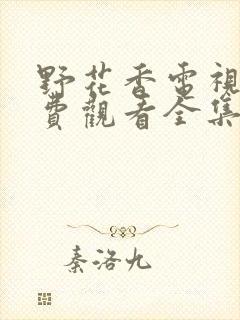 野花香電視
費觀看全集
秦洛九